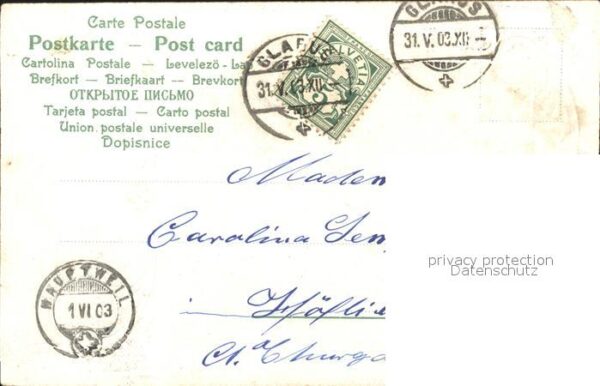 Carte Postale
Postkarte – Post card
Cartolina Postale – Levelező-La
Brefkort – Briefkaart – Brevkort
ОТКРЫТОЕ ПИСЬМО
Tarjeta postal – Carto postal
Union postale universelle
Dopisnice
GLARUS
31.V.03.XII
HELVETIA
GLARUS
31.V.03.XII
Madem
Carolina
privacy protection
Datenschutz
1 VI 03
Ct. Thurga